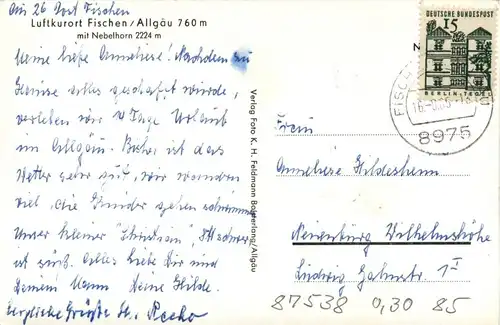 Aus 26 Dorf Fischen
Luftkurort Fischen/Allgäu 760 m
mit Nebelhorn 2224 m
Meine liebe Anneliese! Nachdem zu
Hause alles geschafft wurde,
verleben wir Tage Urlaub
im Allgäu. Bisher ist das
Wetter sehr gut, wir wandern
viel, die Kinder gehen schwimmen
Unser kleiner "Christian",
ist süß. Alles liebe Dir und
Deinem Mann Deine Hilde.
herzliche Grüße
Verlag Foto K. H. Feldmann Balderschwang/Allgäu
DEUTSCHE BUNDESPOST
15
BERLIN-TEGEL
FISCH
8975
Frau
Anneliese Hildesheim
Neuenbürg Wilhelmshöhe
Ludwig Jahnstr. 1
87538 0,30 85